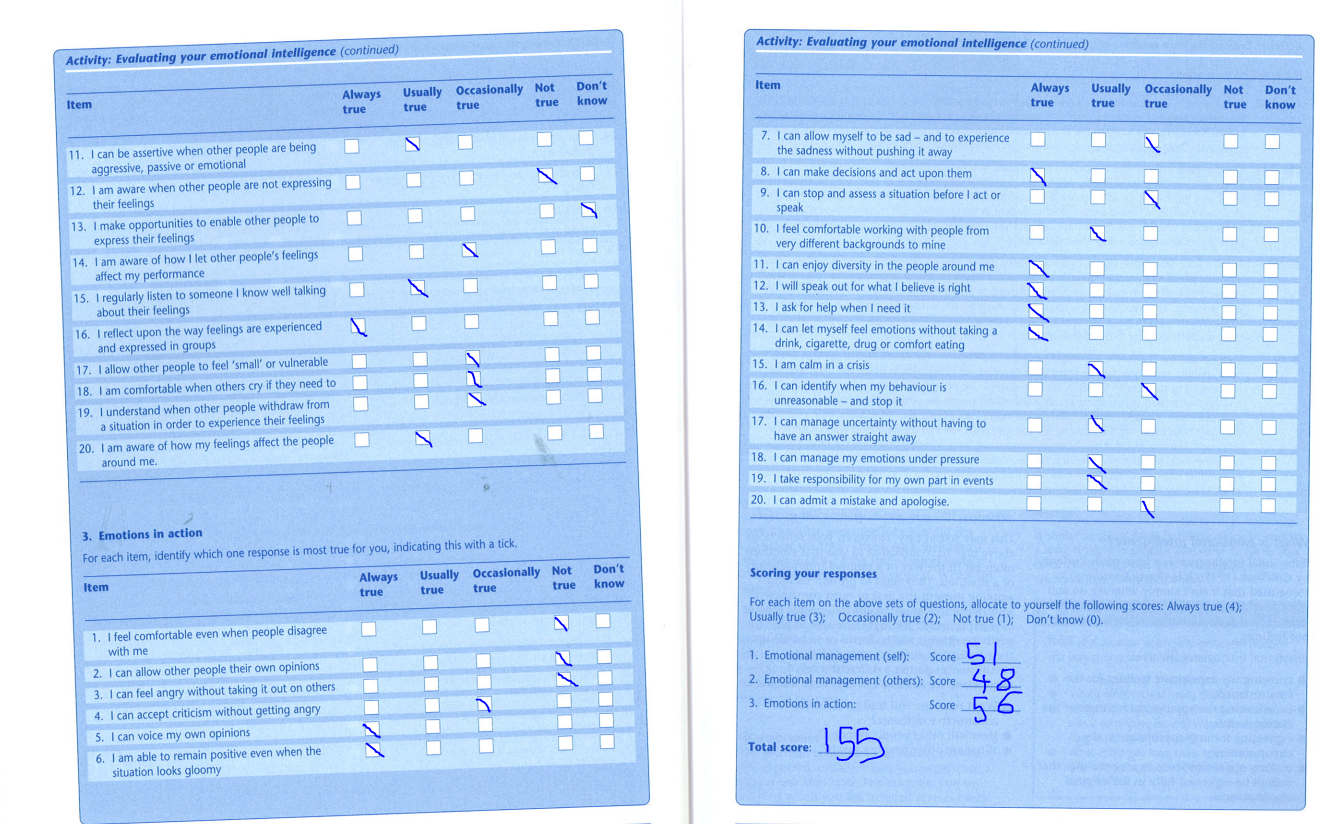 Activity: Evaluating your emotional intelligence (continued)
Item Always true Usually true Occasionally true Not true Don't know
11. I can be assertive when other people are being
aggressive, passive or emotional
12. I am aware when other people are not expressing
their feelings
13. I make opportunities to enable other people to
express their feelings
14. I am aware of how I let other people's feelings
affect my performance
15. I regularly listen to someone I know well talking
about their feelings
16. I reflect upon the way feelings are experienced
and expressed in groups
17. I allow other people to feel 'small' or vulnerable
18. I am comfortable when others cry if they need to
19. I understand when other people withdraw from
a situation in order to experience their feelings
20. I am aware of how my feelings affect the people
around me.
3. Emotions in action
For each item, identify which one response is most true for you, indicating this with a tick.
Item Always true Usually true Occasionally true Not true Don't know
1. I feel comfortable even when people disagree
with me
2. I can allow other people their own opinions
3. I can feel angry without taking it out on others
4. I can accept criticism without getting angry
5. I can voice my own opinions
6. I am able to remain positive even when the
situation looks gloomy
Activity: Evaluating your emotional intelligence (continued)
Item Always true Usually true Occasionally true Not true Don't know
7. I can allow myself to be sad – and to experience
the sadness without pushing it away
8. I can make decisions and act upon them
9. I can stop and assess a situation before I act or
speak
10. I feel comfortable working with people from
very different backgrounds to mine
11. I can enjoy diversity in the people around me
12. I will speak out for what I believe is right
13. I ask for help when I need it
14. I can let myself feel emotions without taking a
drink, cigarette, drug or comfort eating
15. I am calm in a crisis
16. I can identify when my behaviour is
unreasonable – and stop it
17. I can manage uncertainty without having to
have an answer straight away
18. I can manage my emotions under pressure
19. I take responsibility for my own part in events
20. I can admit a mistake and apologise.
Scoring your responses
For each item on the above sets of questions, allocate to yourself the following scores: Always true (4);
Usually true (3); Occasionally true (2); Not true (1); Don't know (0).
1. Emotional management (self): Score 51
2. Emotional management (others): Score 48
3. Emotions in action: Score 56
Total score: 155